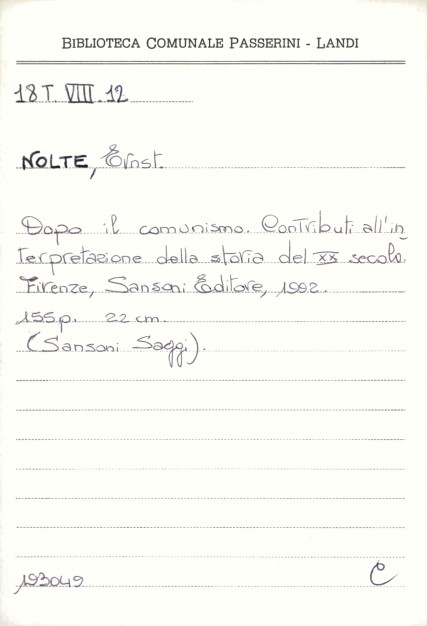 BIBLIOTECA COMUNALE PASSERINI - LANDI
18 T. VIII. 12
NOLTE, Ernst.
Dopo il comunismo. Contributi all'in
terpretazione della storia del XX secolo.
Firenze, Sansoni Editore, 1992.
155 p. 22 cm.
(Sansoni Saggi).
193049 C